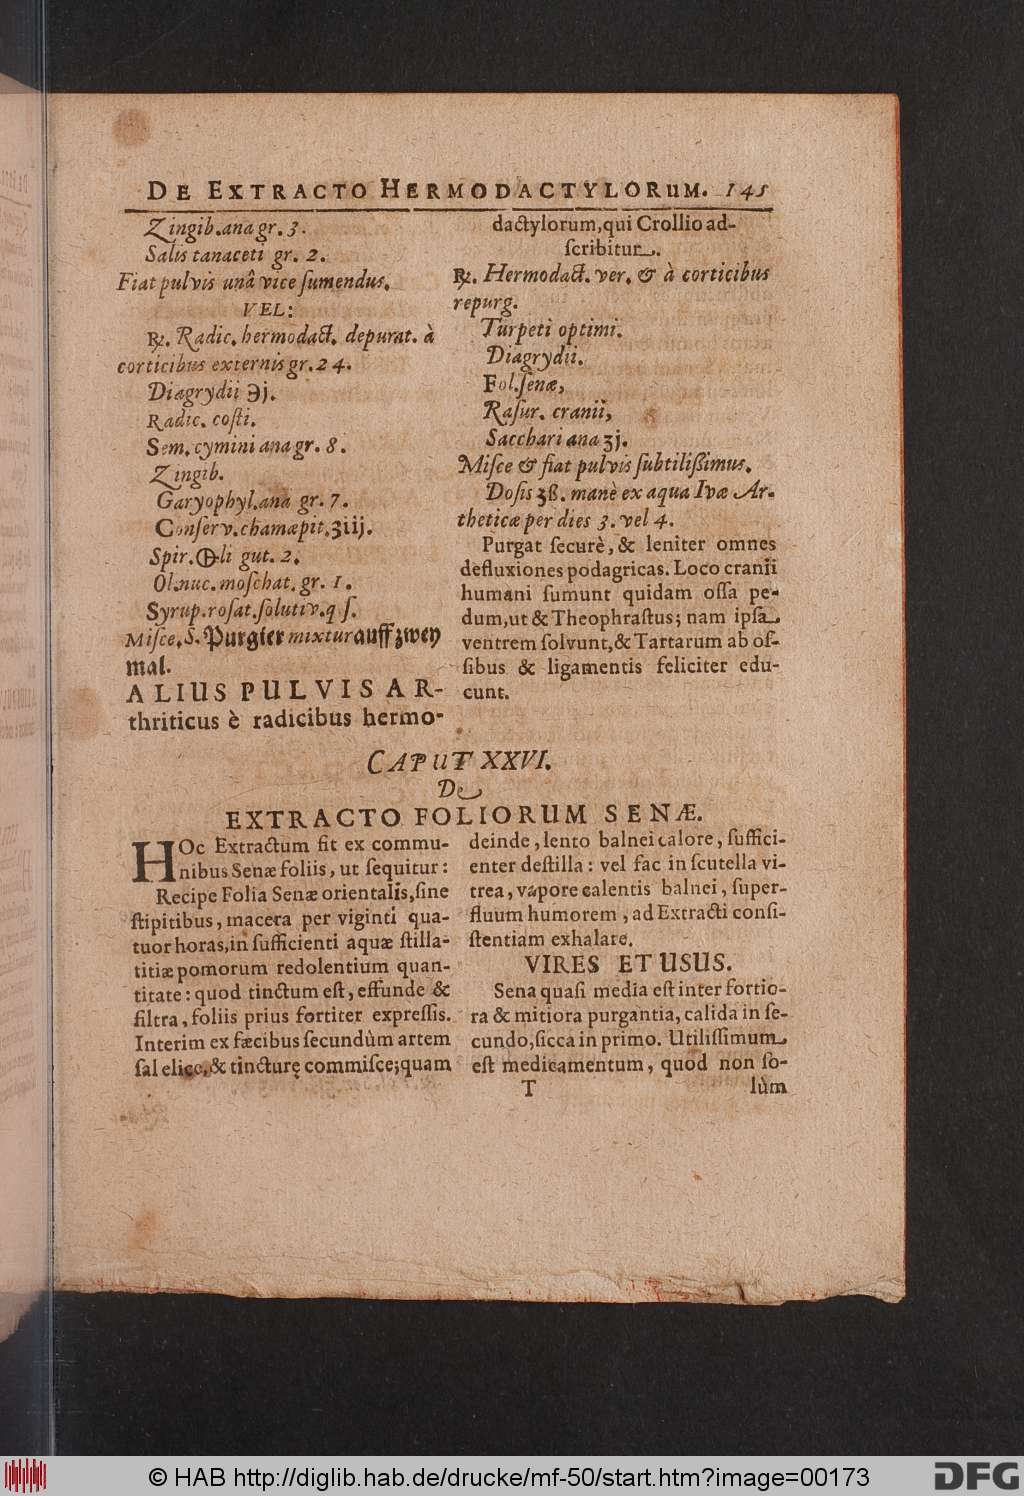 DE EXTRACTO HERMODACTYLORUM. 145
Zingib. ana gr. 3.
Salis tanaceti gr. 2.
Fiat pulvis unâ vice ſumendus.
VEL:
℞. Radic. hermodact. depurat. à
corticibus externis gr. 24.
Diagrydii ℈j.
Radic. coſti.
Sem. cymini ana gr. 8.
Zingib.
Garyophyl. ana gr. 7.
Conſerv. chamæpit. ʒiij.
Spir. 🜕li gut. 2.
Ol. nuc. moſchat. gr. 1.
Syrup. roſat. ſolutiv. q. ſ.
Miſce, S. Purgier mixtur auff zwey
mal.
ALIUS PULVIS AR-
thriticus è radicibus hermo-
dactylorum, qui Crollio ad-
ſcribitur.
℞. Hermodact. ver. & à corticibus
repurg.
Turpeti optimi.
Diagrydii.
Fol. ſenæ,
Raſur. cranii,
Sacchari ana ʒj.
Miſce & fiat pulvis ſubtiliſſimus.
Doſis ʒß. manè ex aqua Ivæ Ar-
theticæ per dies 3. vel 4.
Purgat ſecurè, & leniter omnes
defluxiones podagricas. Loco cranii
humani ſumunt quidam oſſa pe-
dum, ut & Theophraſtus; nam ipſa
ventrem ſolvunt, & Tartarum ab oſ-
ſibus & ligamentis feliciter edu-
cunt.
CAPUT XXVI.
De
EXTRACTO FOLIORUM SENÆ.
HOc Extractum fit ex commu-
nibus Senæ foliis, ut ſequitur:
Recipe Folia Senæ orientalis, ſine
ſtipitibus, macera per viginti qua-
tuor horas, in ſufficienti aquæ ſtilla-
titiæ pomorum redolentium quan-
titate: quod tinctum eſt, effunde &
filtra, foliis prius fortiter expreſſis.
Interim ex fæcibus ſecundùm artem
ſal elice, & tincturę commiſce; quam
deinde, lento balnei calore, ſuffici-
enter deſtilla: vel fac in ſcutella vi-
trea, vapore calentis balnei, ſuper-
fluum humorem, ad Extracti conſi-
ſtentiam exhalare.
VIRES ET USUS.
Sena quaſi media eſt inter fortio-
ra & mitiora purgantia, calida in ſe-
cundo, ſicca in primo. Utiliſſimum
eſt medicamentum, quod non ſo-
T lùm
© HAB http://diglib.hab.de/drucke/mf-50/start.htm?image=00173 DFG